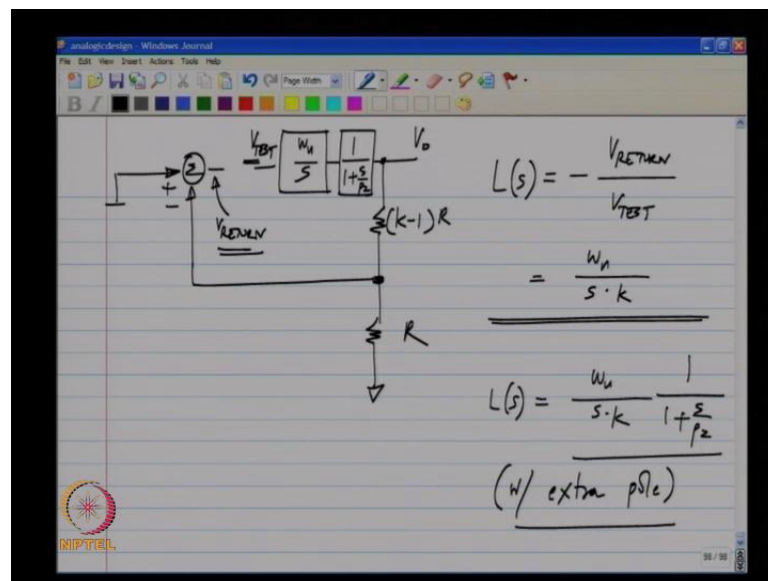 analogicdesign - Windows Journal
File Edit View Insert Actions Tools Help
Page Width
B I
V_TEST
ω_u
S
1
1+S/p2
V_o
Σ
+
−
−
V_RETURN
(k-1)R
R
L(s) = − V_RETURN / V_TEST
= ω_u / s·k
L(s) = ω_u / s·k 1 / 1+S/p2
(w/ extra pole)
NPTEL
98 / 98